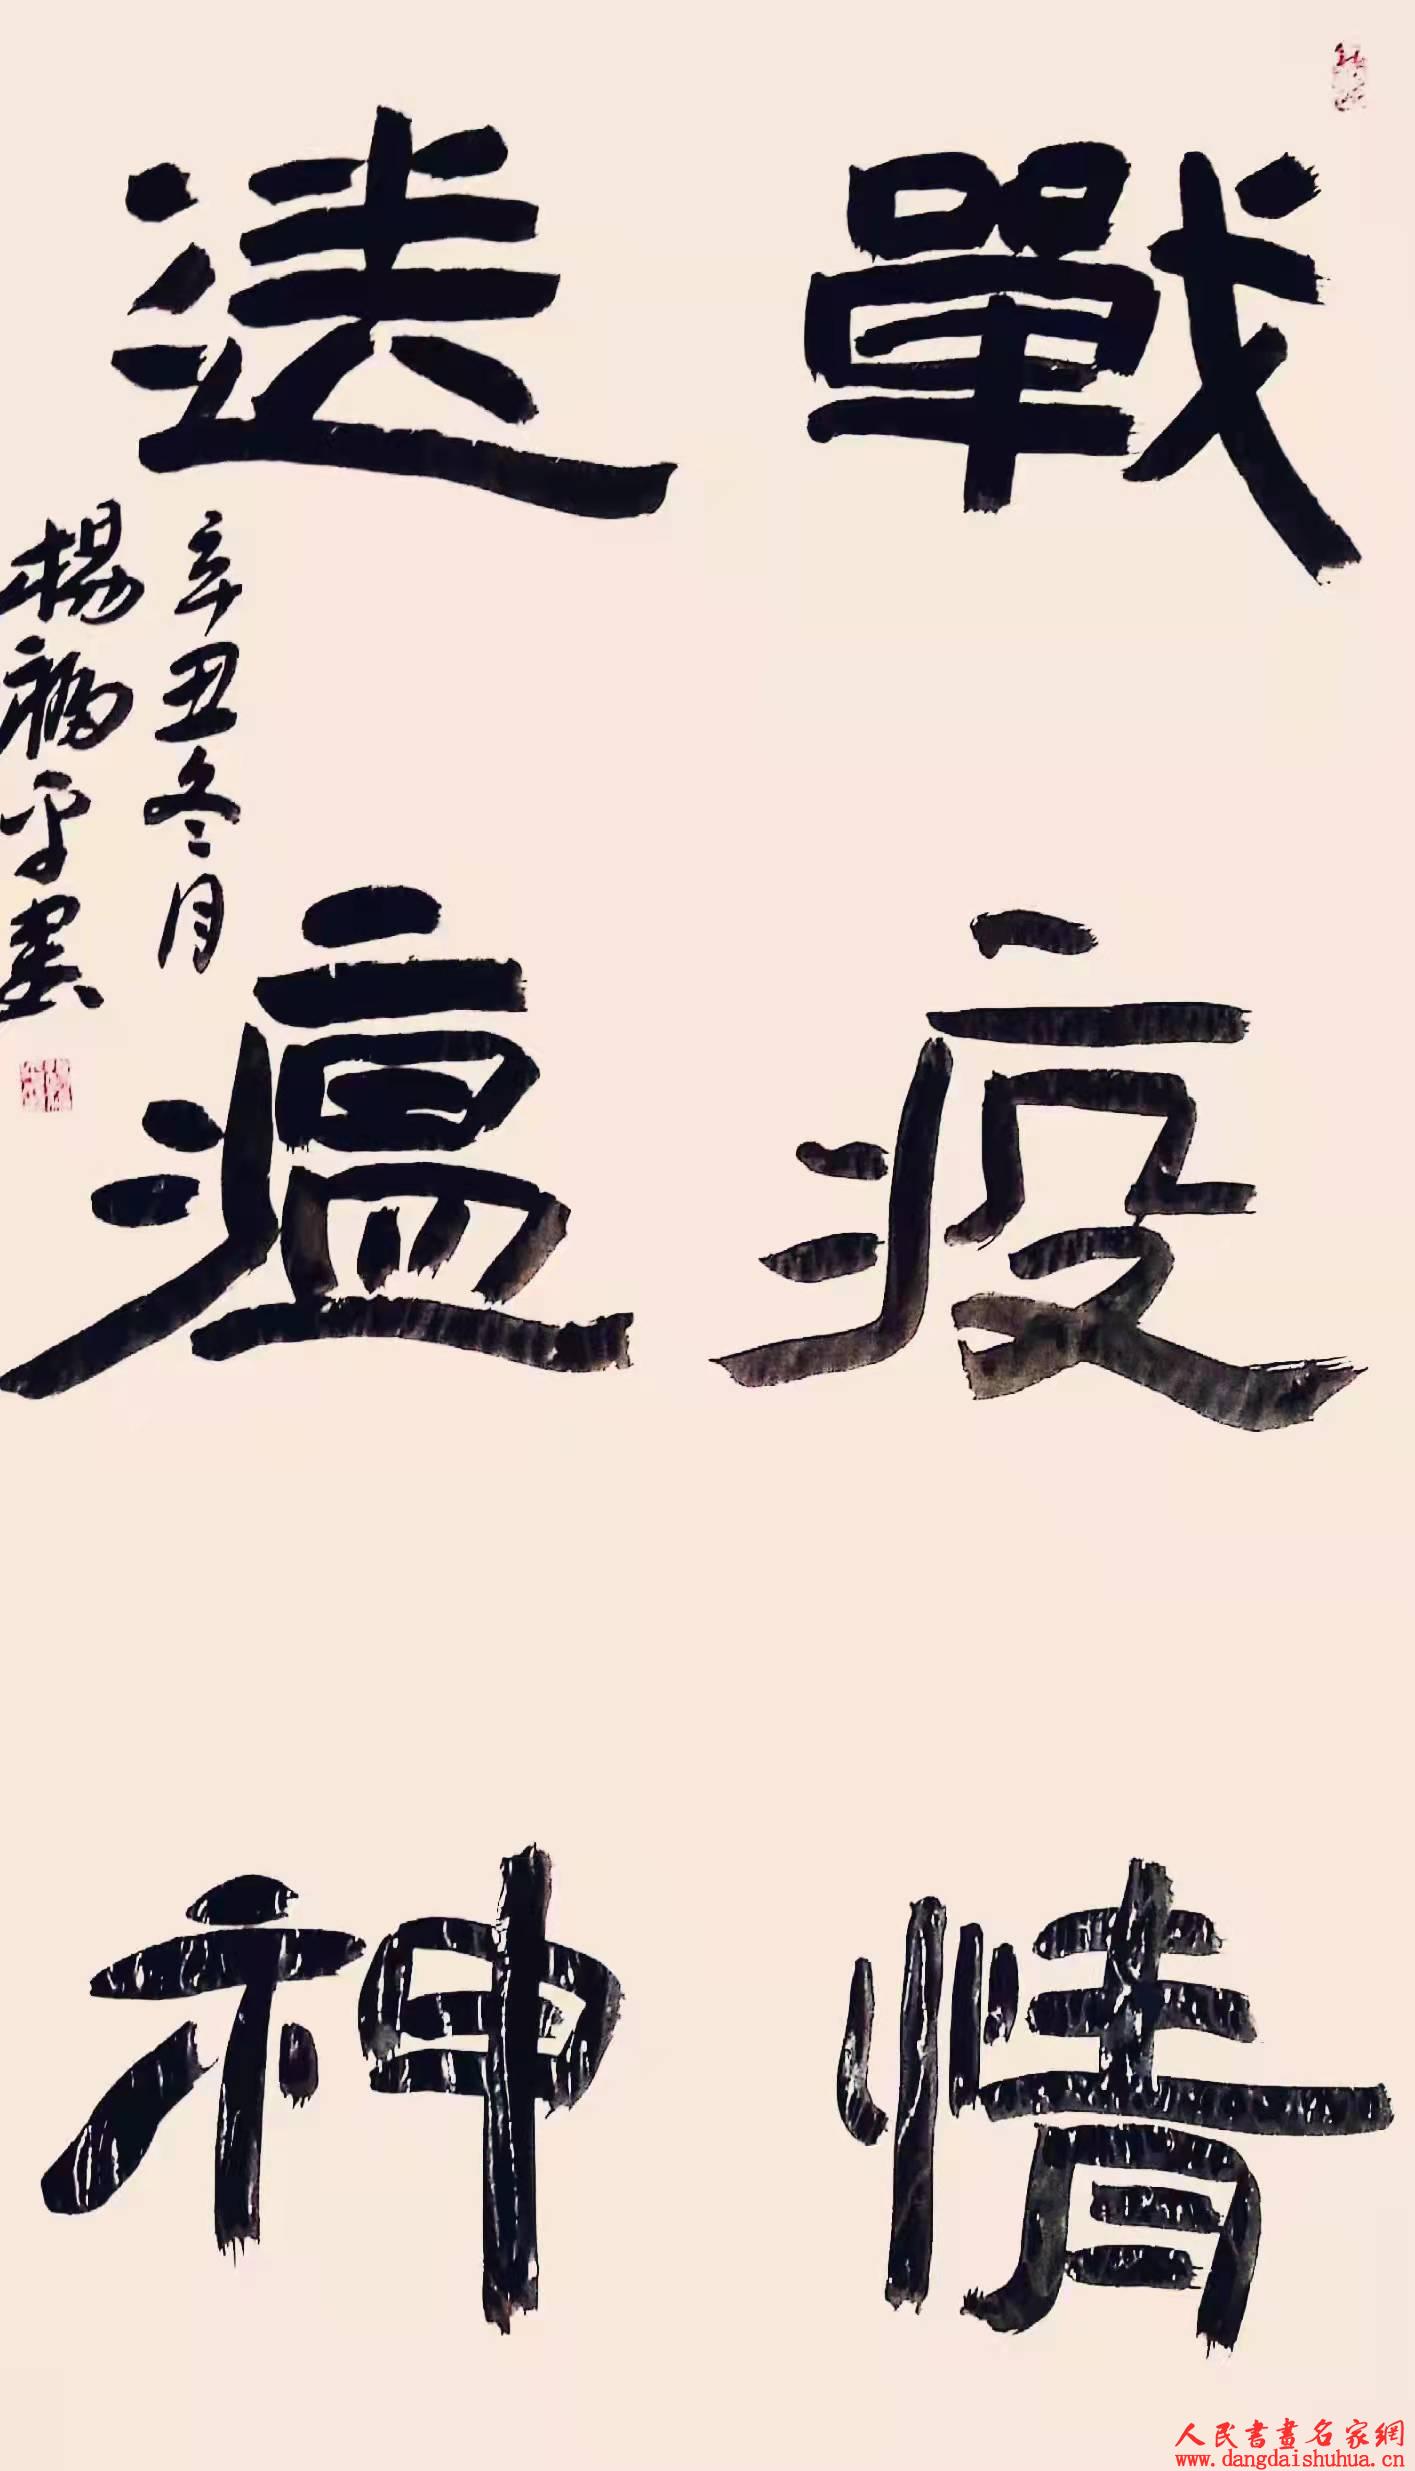 戰疫情
送瘟神
辛丑冬月
楊福平書
人民書畫名家網
www.dangdaishuhua.cn